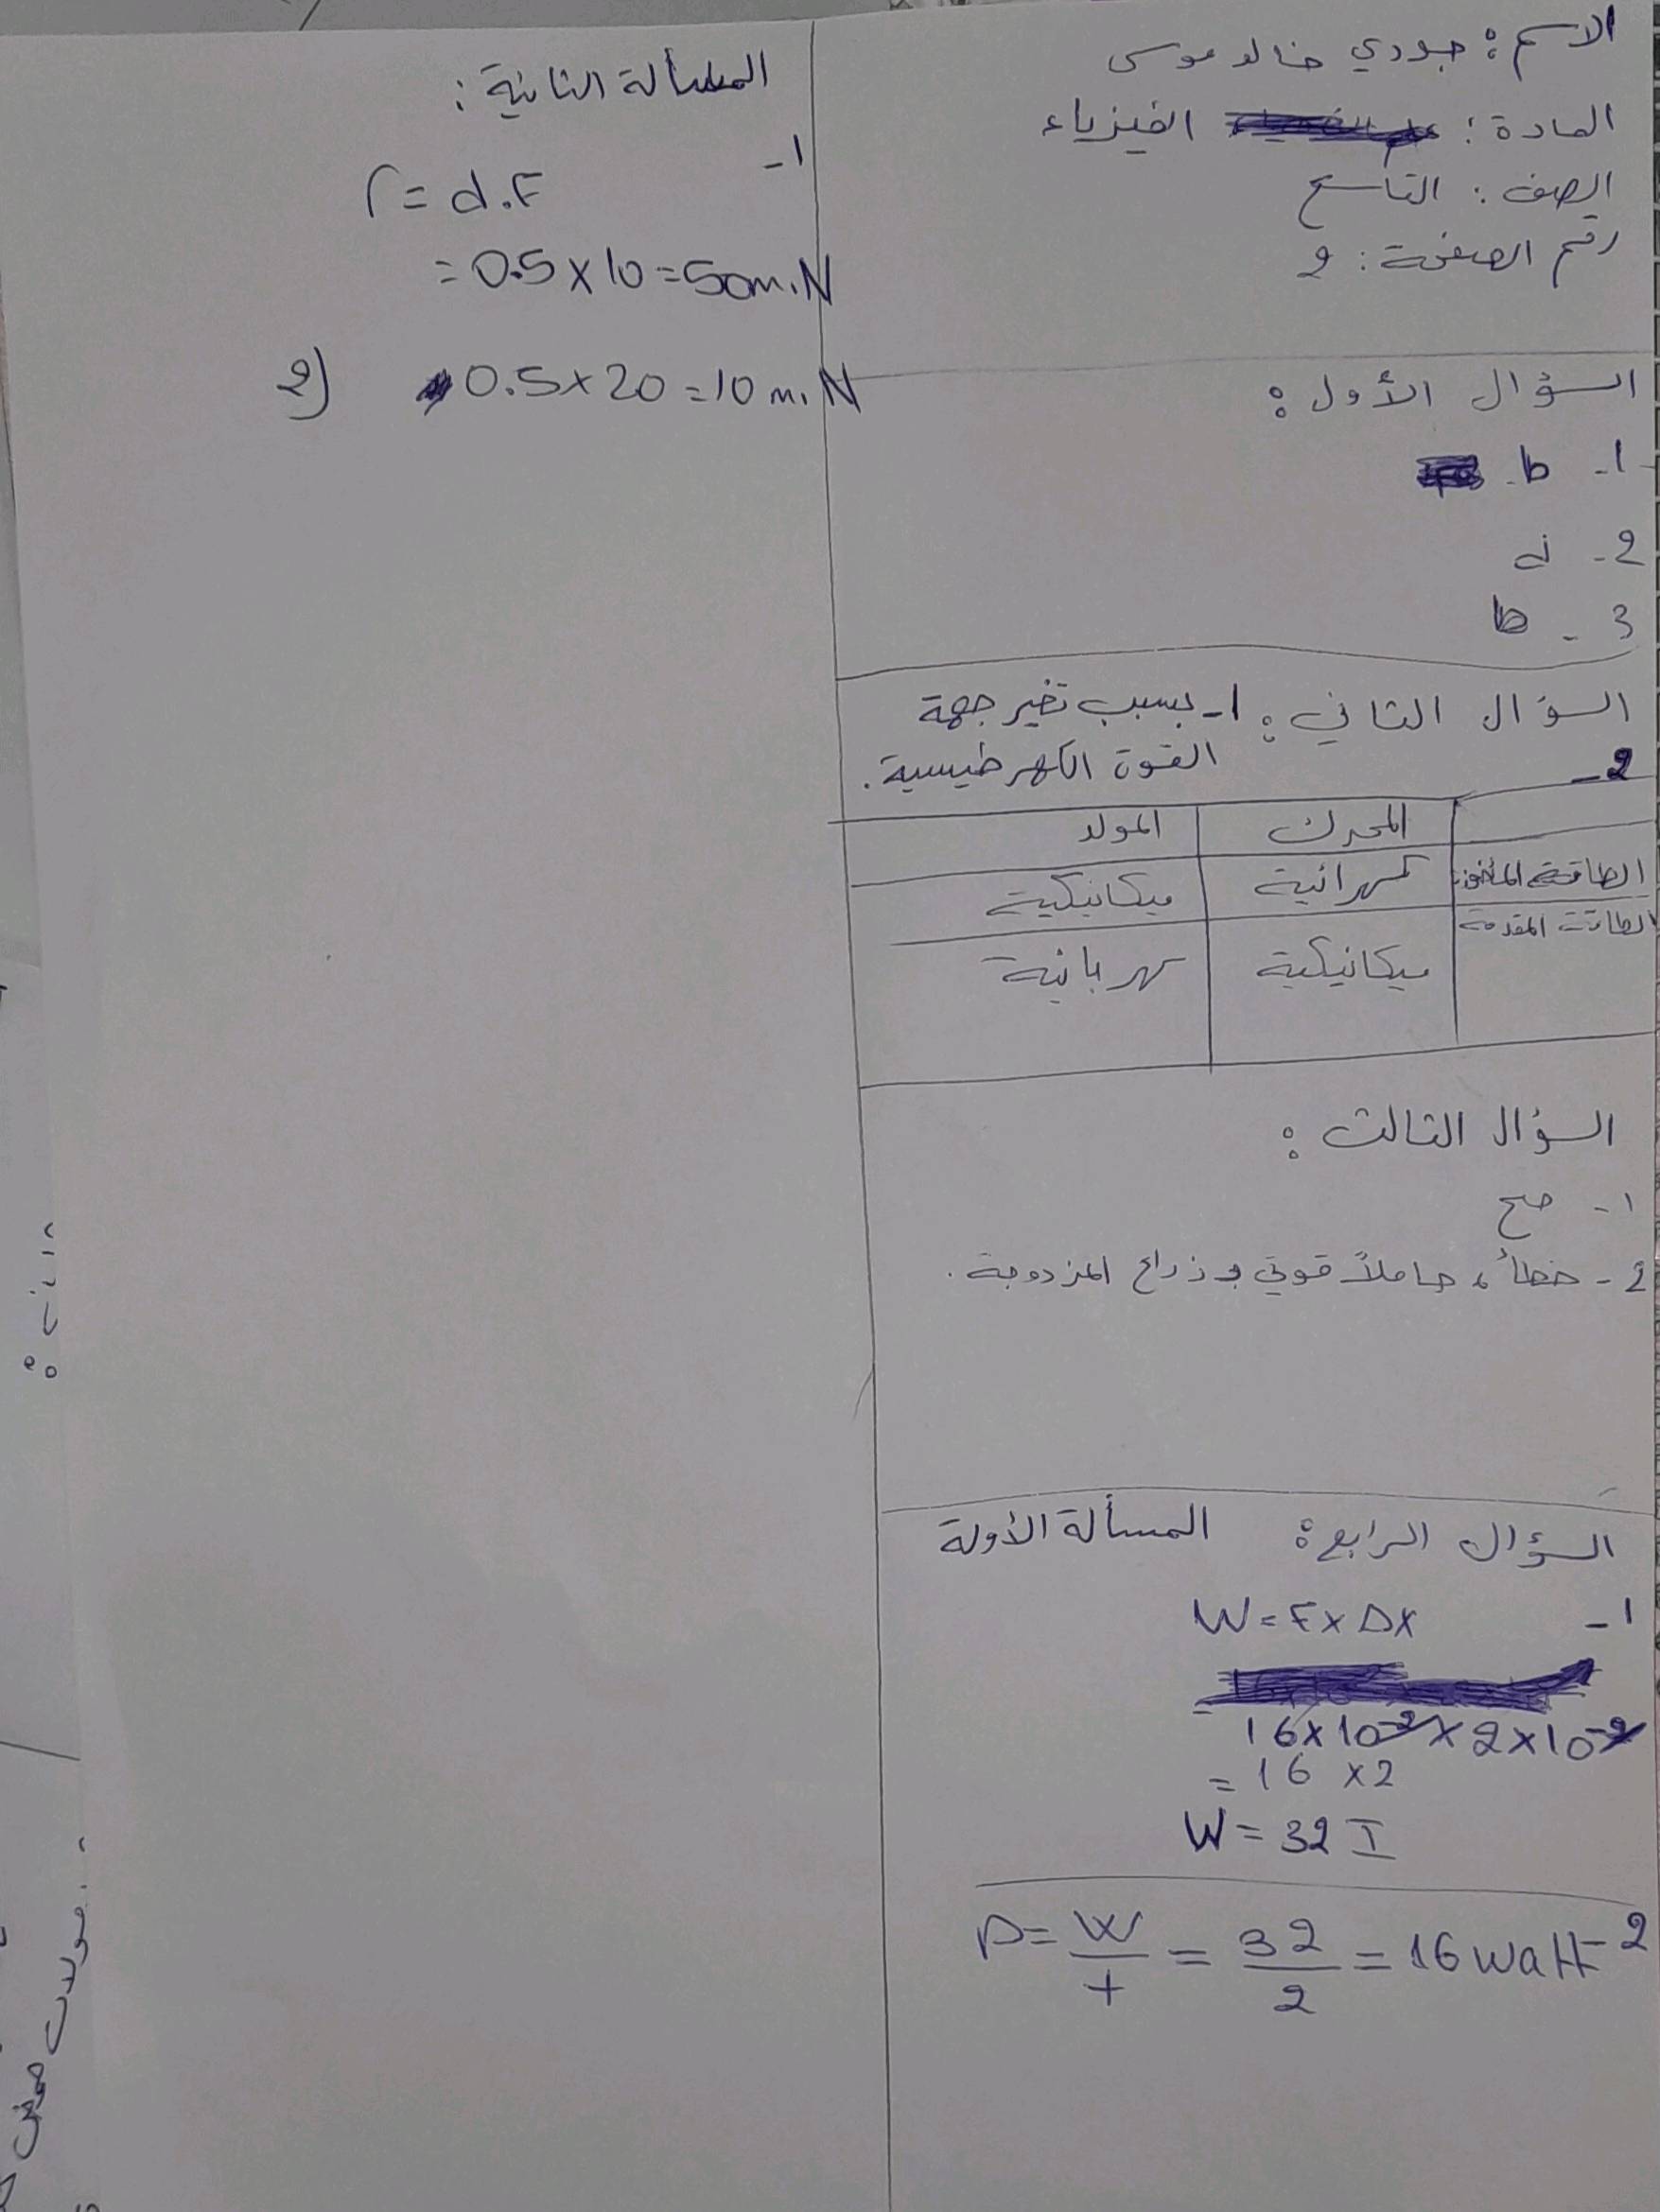 الاسم : جودي خالد موسى
المادة : الفيزياء
الصف : التاسع
رقم الصفحة : 2
السؤال الأول :
1- b
2- d
3- b
السؤال الثاني : 1- بسبب تغير جهة
القوة الكهرطيسية .
2-
المحرك المولد
الطاقة المأخوذة كهربائية ميكانيكية
الطاقة المقدمة ميكانيكية كهربائية
السؤال الثالث :
1- صح
2- خطأ، حاملا قوتي و ذراع المزدوجة .
السؤال الرابع : المسألة الأولة
1- W = F x Δx
=
16 x 10-2 x 2 x 10-2
= 16 x 2
W = 32 I
2- P = W/t = 32/2 = 16 watt
المسألة الثانية :
1-
Γ = d.F
= 0.5 x 10 = 50 m.N
2) 0.5 x 20 = 10 m.N